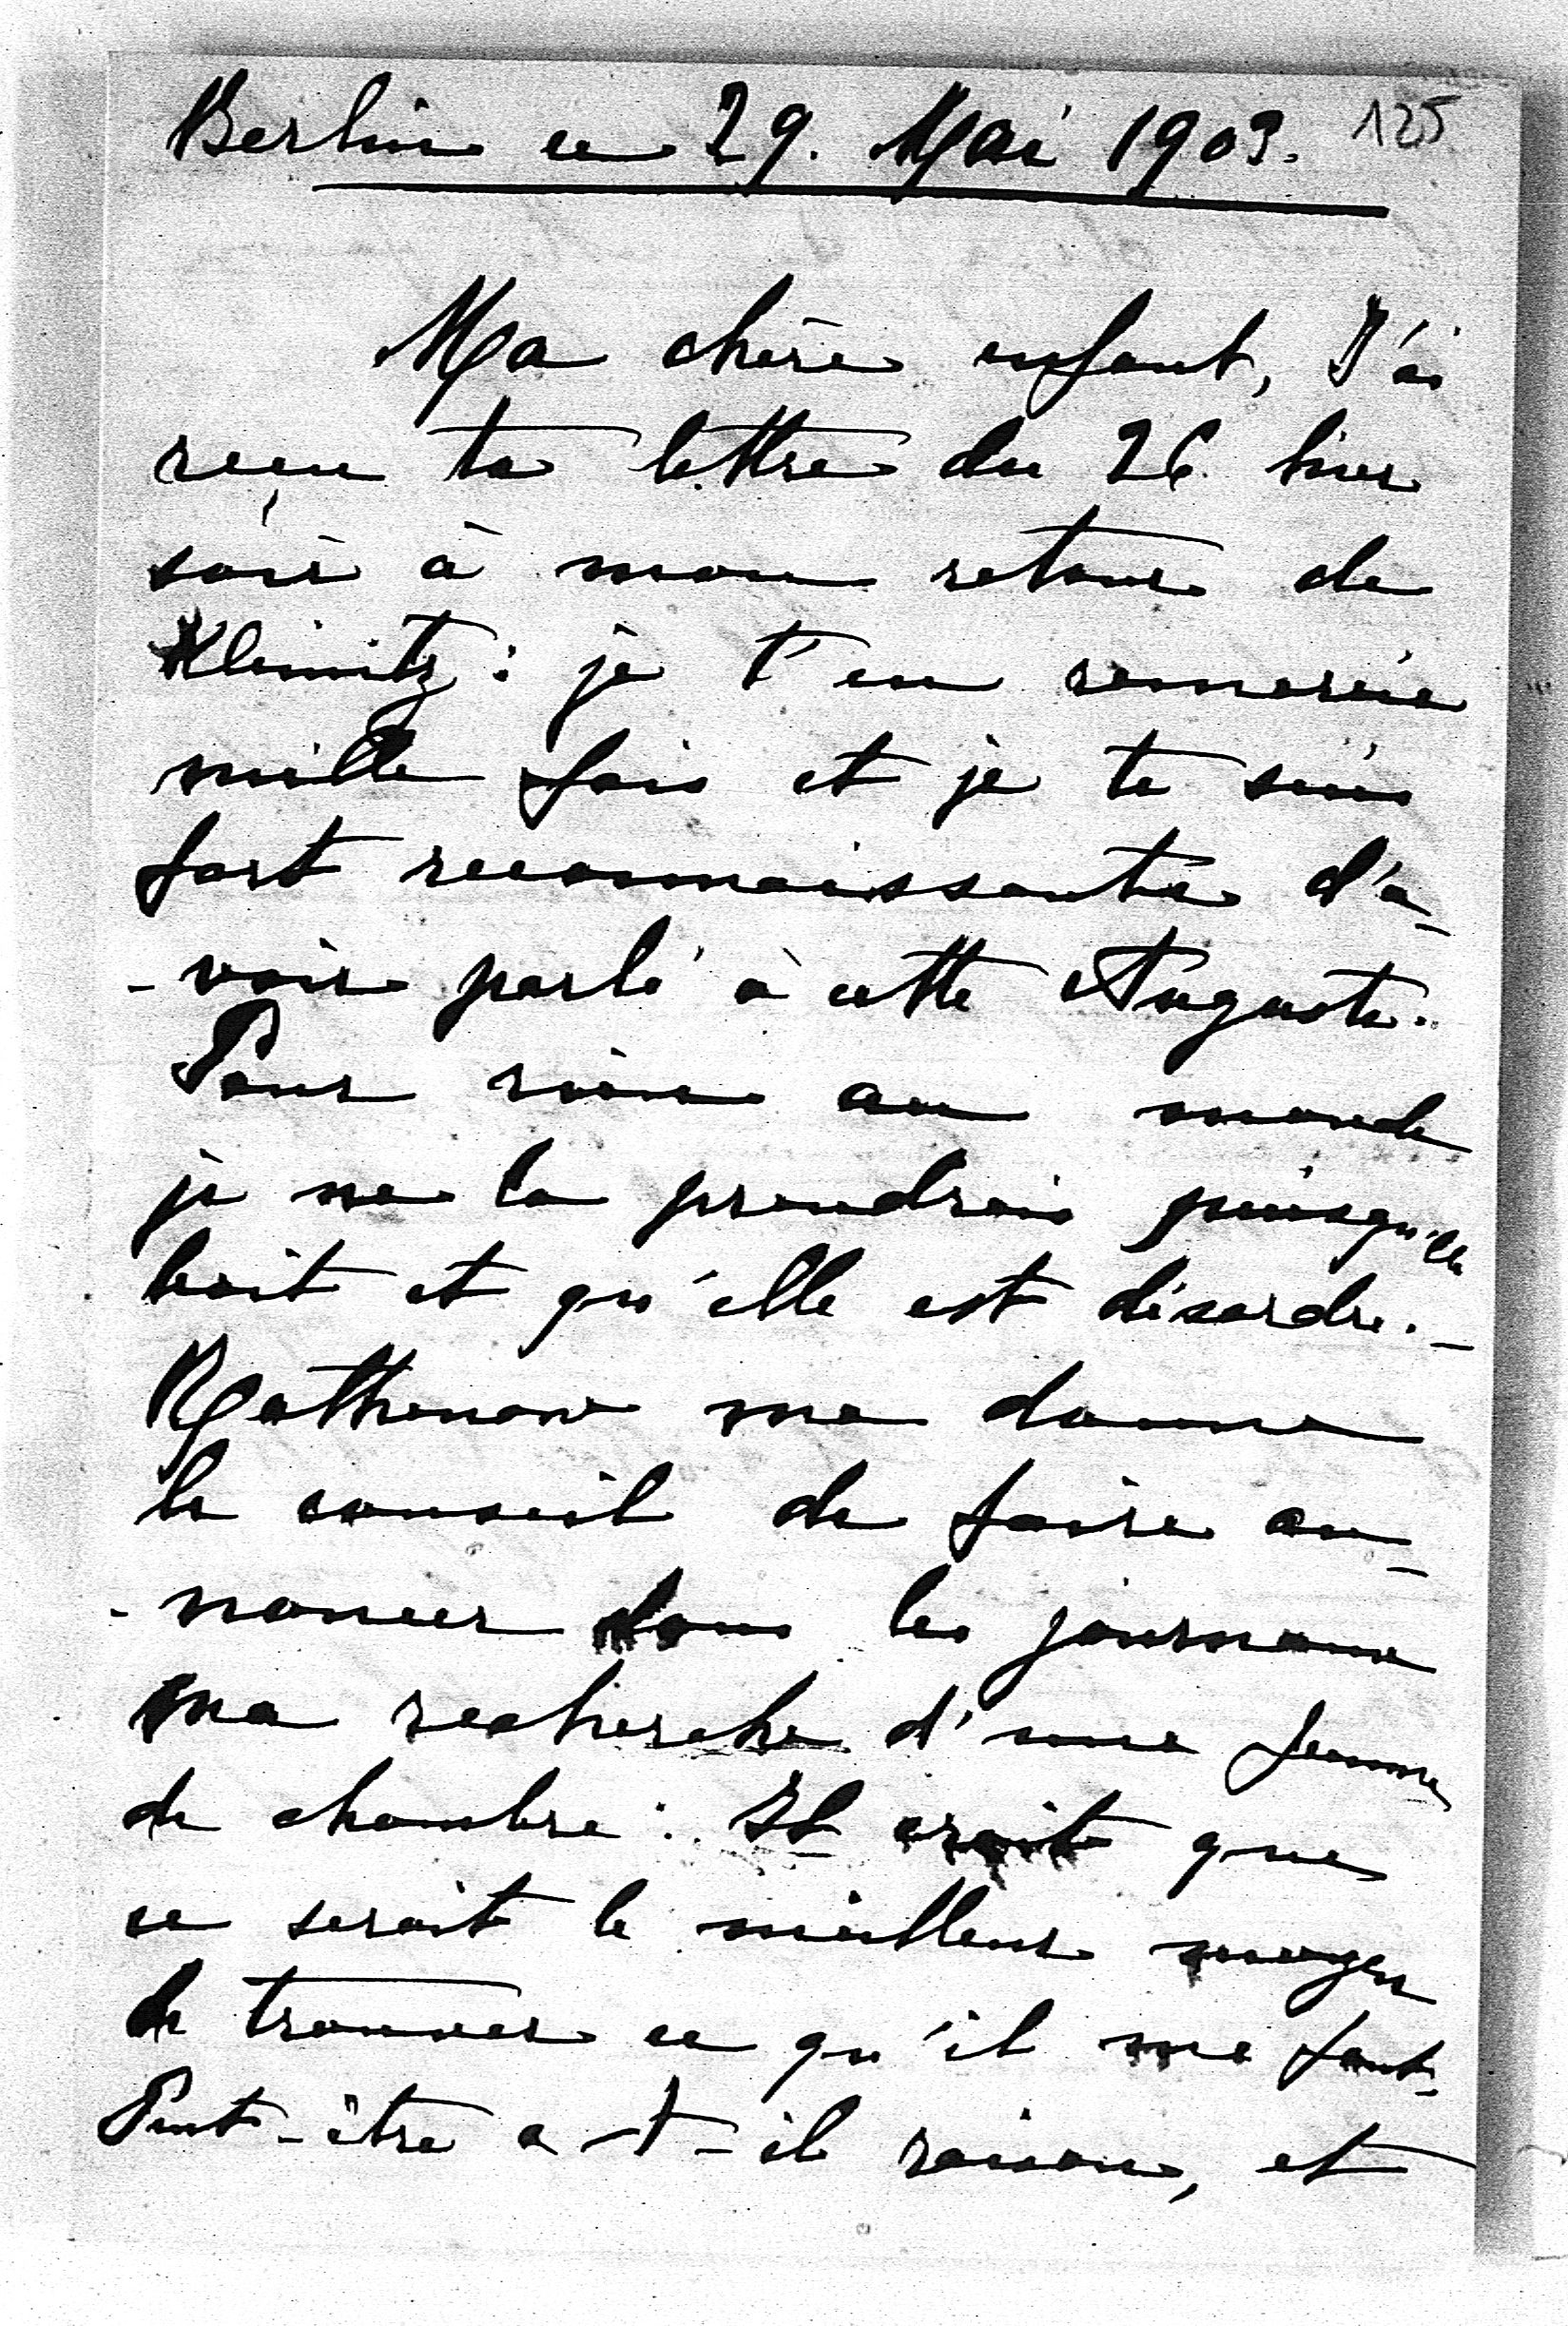 Berlin ce 29. Mai 1903. 125
Ma chère enfant, J'ai
reçu ta lettre du 26 hier
soir à mon retour de
Kleinitz : je t'en remercie
mille fois et je te suis
fort reconnaissante d'a-
-voir parlé à cette Auguste.
Pour rien au monde
je ne la prendrais puisqu'elle
boit et qu'elle est désordre. -
Rathenow me donne
le conseil de faire an-
-noncer dans les journaux
ma recherche d'une femme
de chambre : Il croit que
ce serait le meilleur moyen
de trouver ce qu'il me faut.
Peut-être a-t-il raison, et